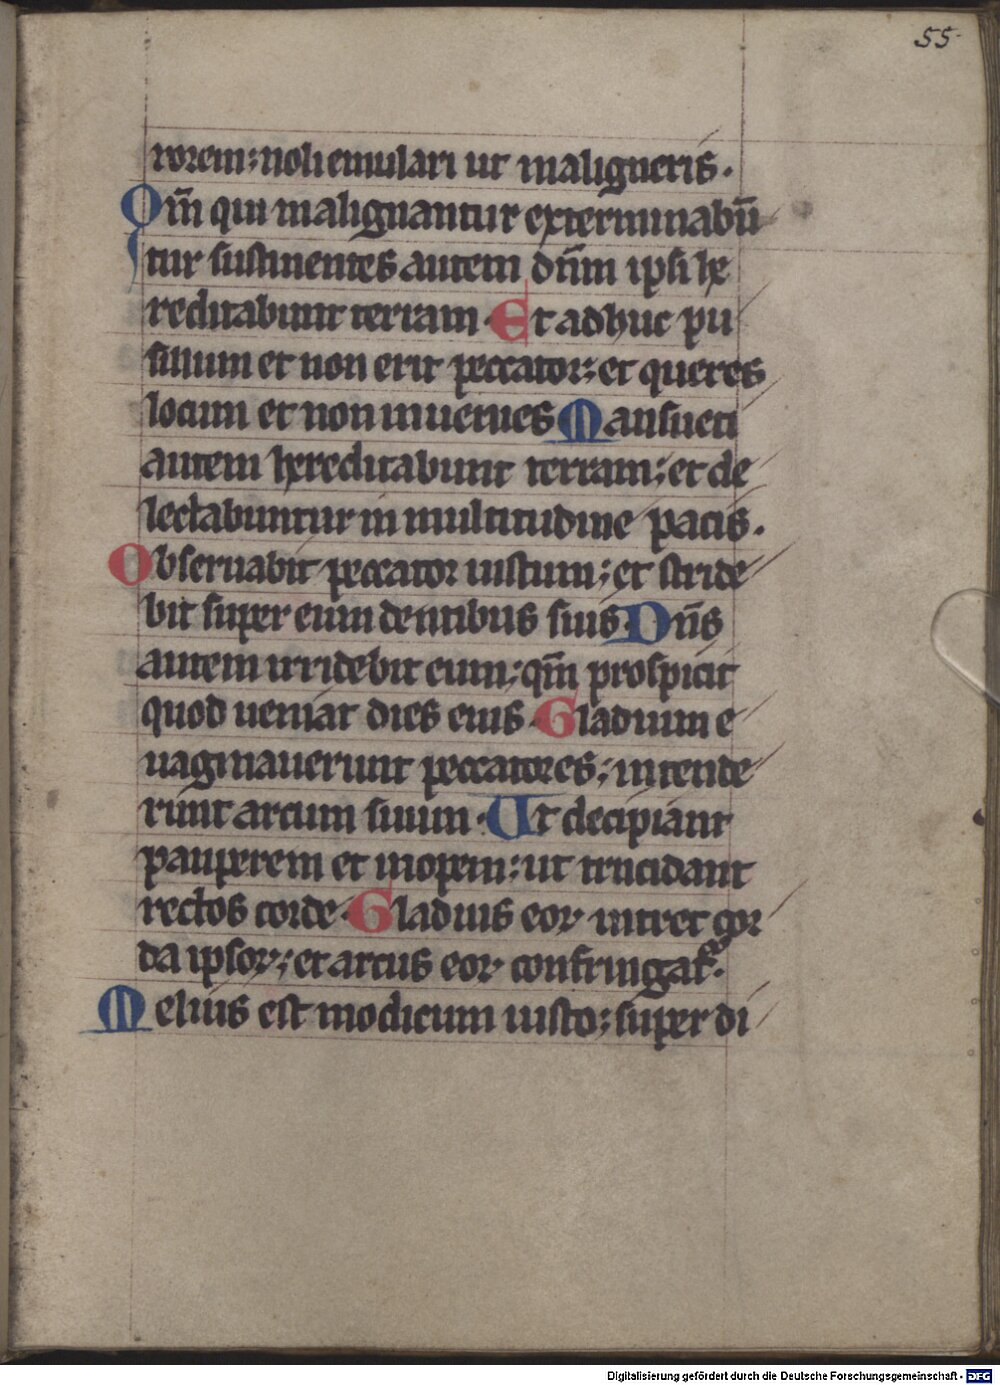 55
rorem: noli emulari ut maligneris.
Qm̅ qui malignantur exterminabu̅
tur sustinentes autem dn̅m ipsi he
reditabunt terram. Et adhuc pu
sillum et non erit peccator: et queres
locum et non inuenies Mansueti
autem hereditabunt terram: et de
lectabuntur in multitudine pacis.
Obseruabit peccator iustum: et stride
bit super eum dentibus suis. Dn̅s
autem irridebit eum: qm̅ prospicit
quod ueniat dies eius. Gladium e
uaginauerunt peccatores: intende
runt arcum suum. Ut decipiant
pauperem et inopem: ut trucidant
rectos corde. Gladius eoꝝ intret cor
da ipsoꝝ: et arcus eoꝝ confringat᷑.
Melius est modicum iusto: super di
Digitalisierung gefördert durch die Deutsche Forschungsgemeinschaft - DFG